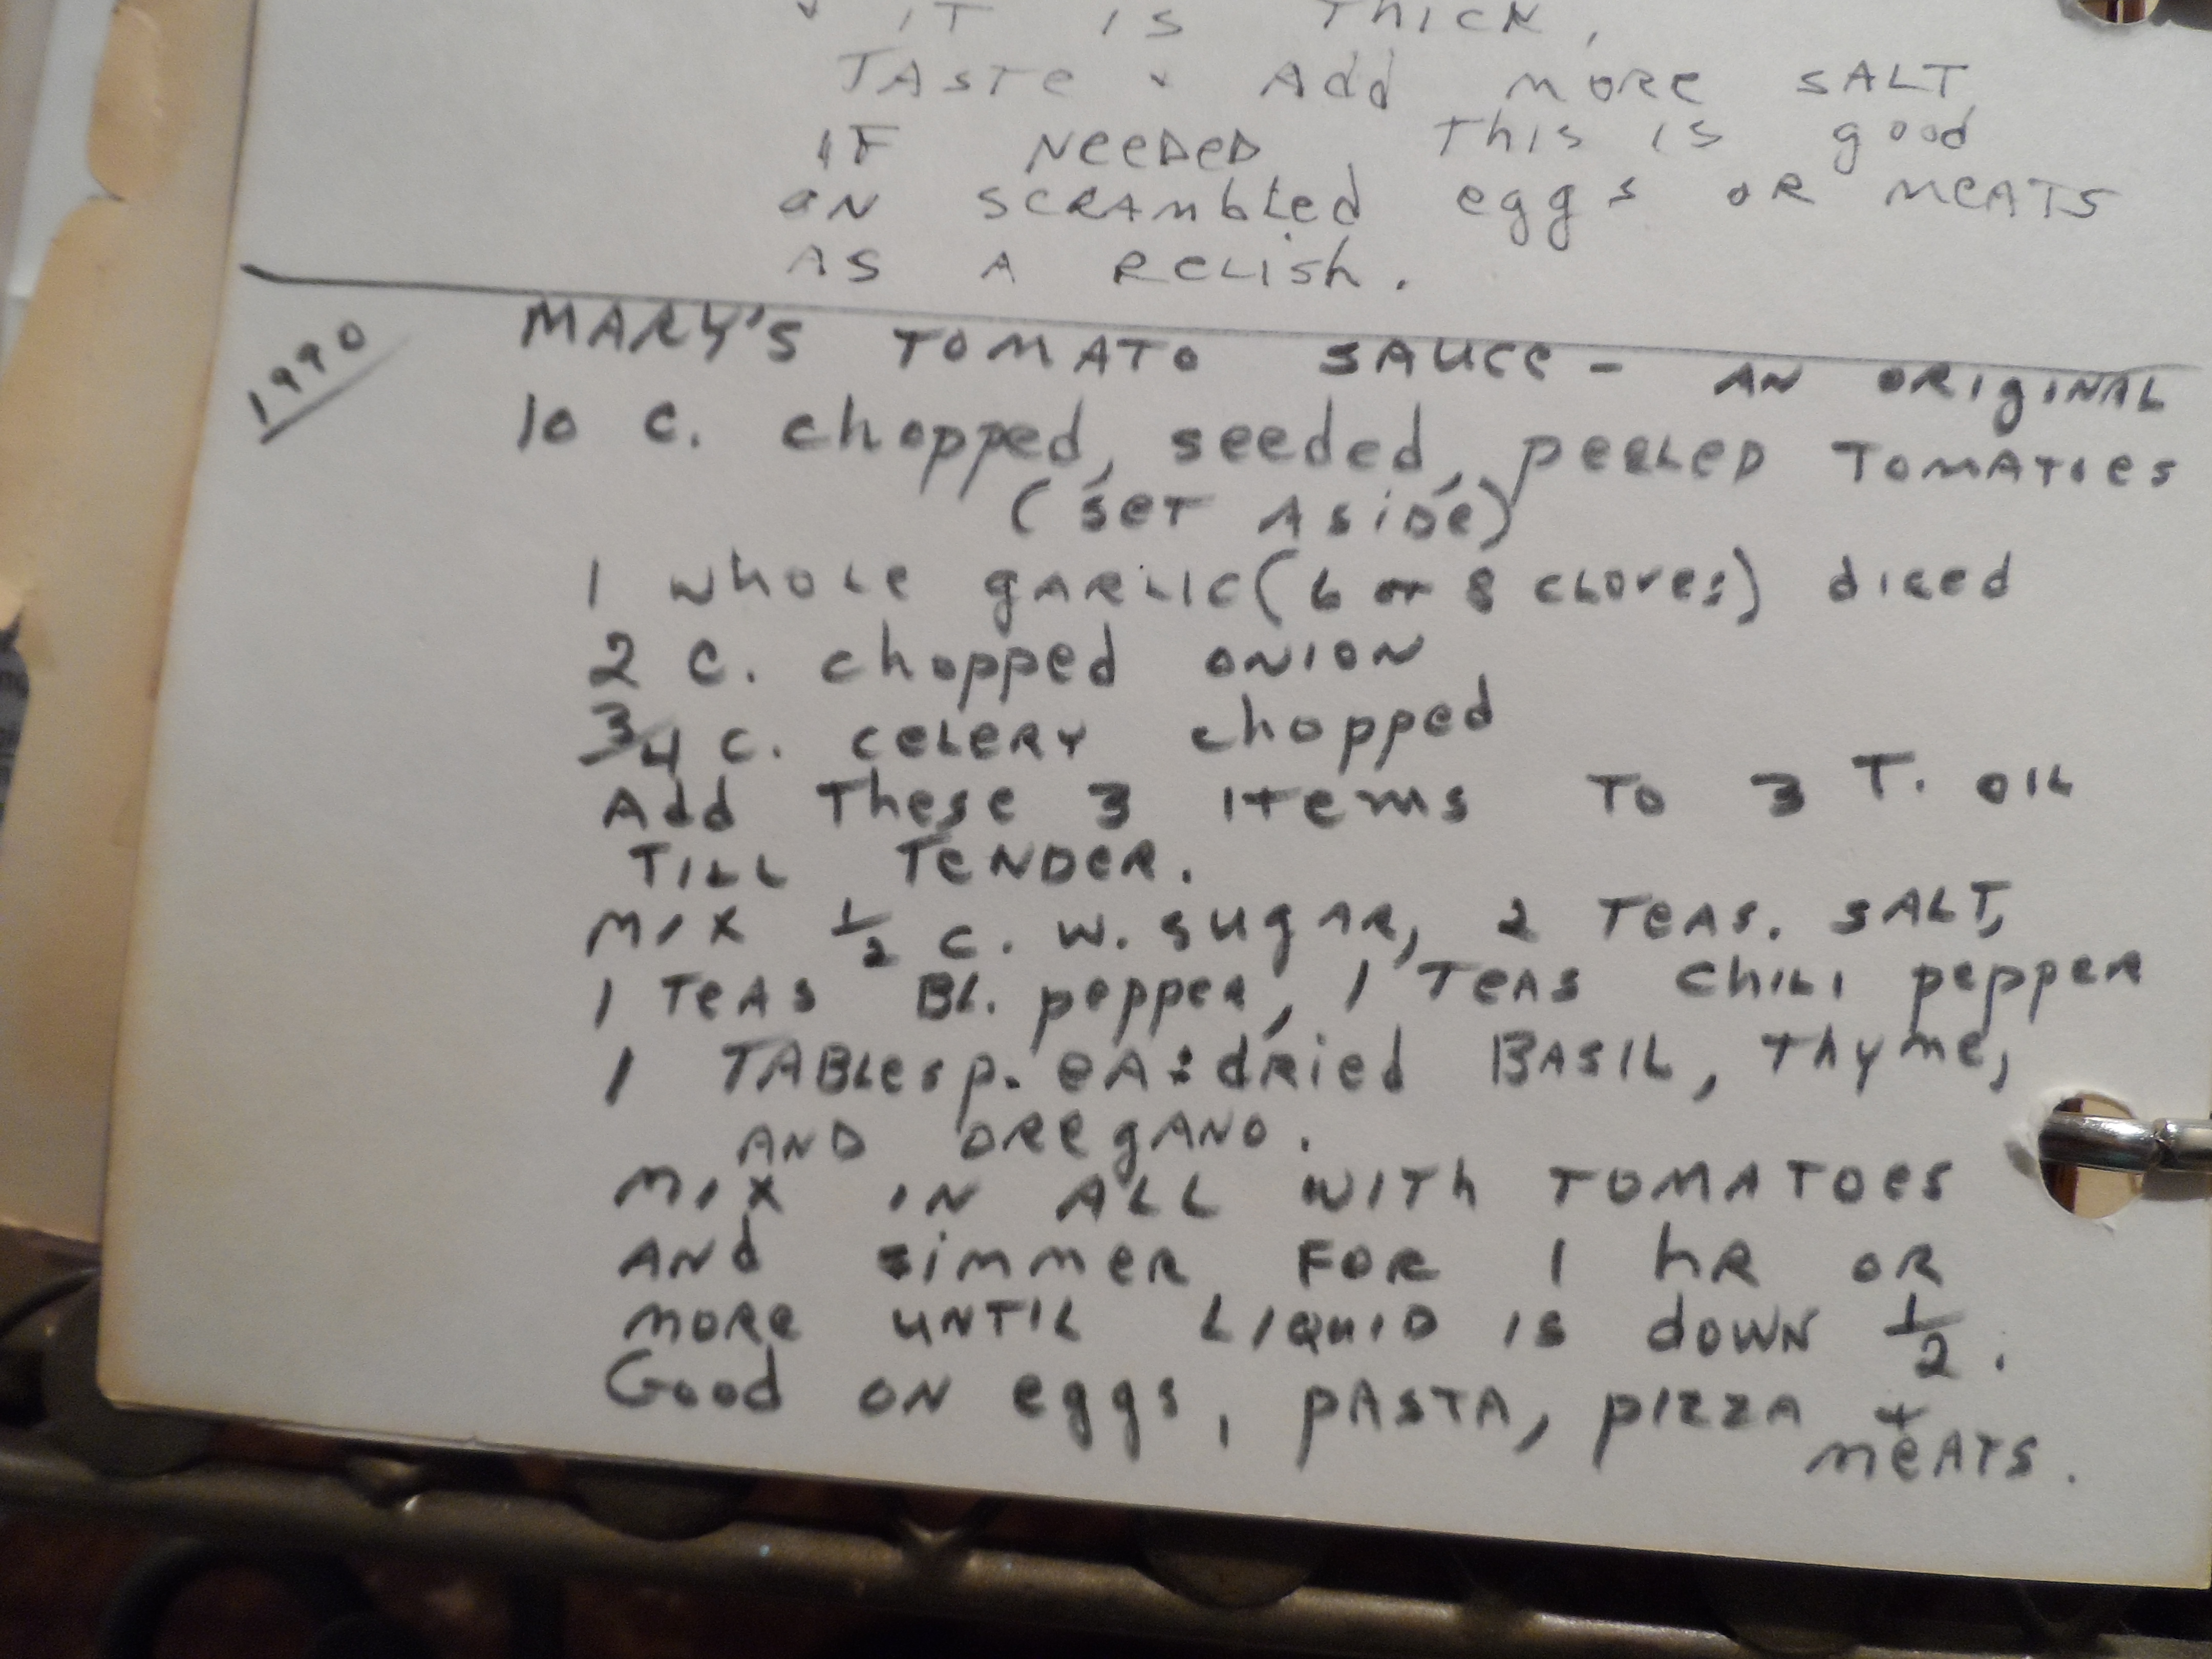 IT IS THICK,
TASTE & Add MORE SALT
IF NEEDED THIS IS good
ON SCRAMBLED eggs OR MEATS
AS A RELISH.
1990
MARY'S TOMATO SAUCE - AN ORIGINAL
10 C. chopped, seeded, peeled TOMATOES
(SET ASIDE)
1 WHOLE GARLIC (6 or 8 CLOVES) diced
2 C. chopped ONION
3/4 C. CELERY chopped
Add These 3 ITems TO 3 T. OIL
TILL TENDER.
MIX 1/2 C. W. sugAR, 2 TEAS. SALT,
1 TEAS BL. pepper, 1 TEAS CHILI pepper
1 TABLESP. EA: dried BASIL, Thyme,
AND OREGANO.
MIX IN ALL WITH TOMATOES
ANd simmER FOR 1 hR OR
MORE UNTIL LIQUID IS dOWN 1/2.
Good ON eggs, pASTA, pIZZA +
MEATS.